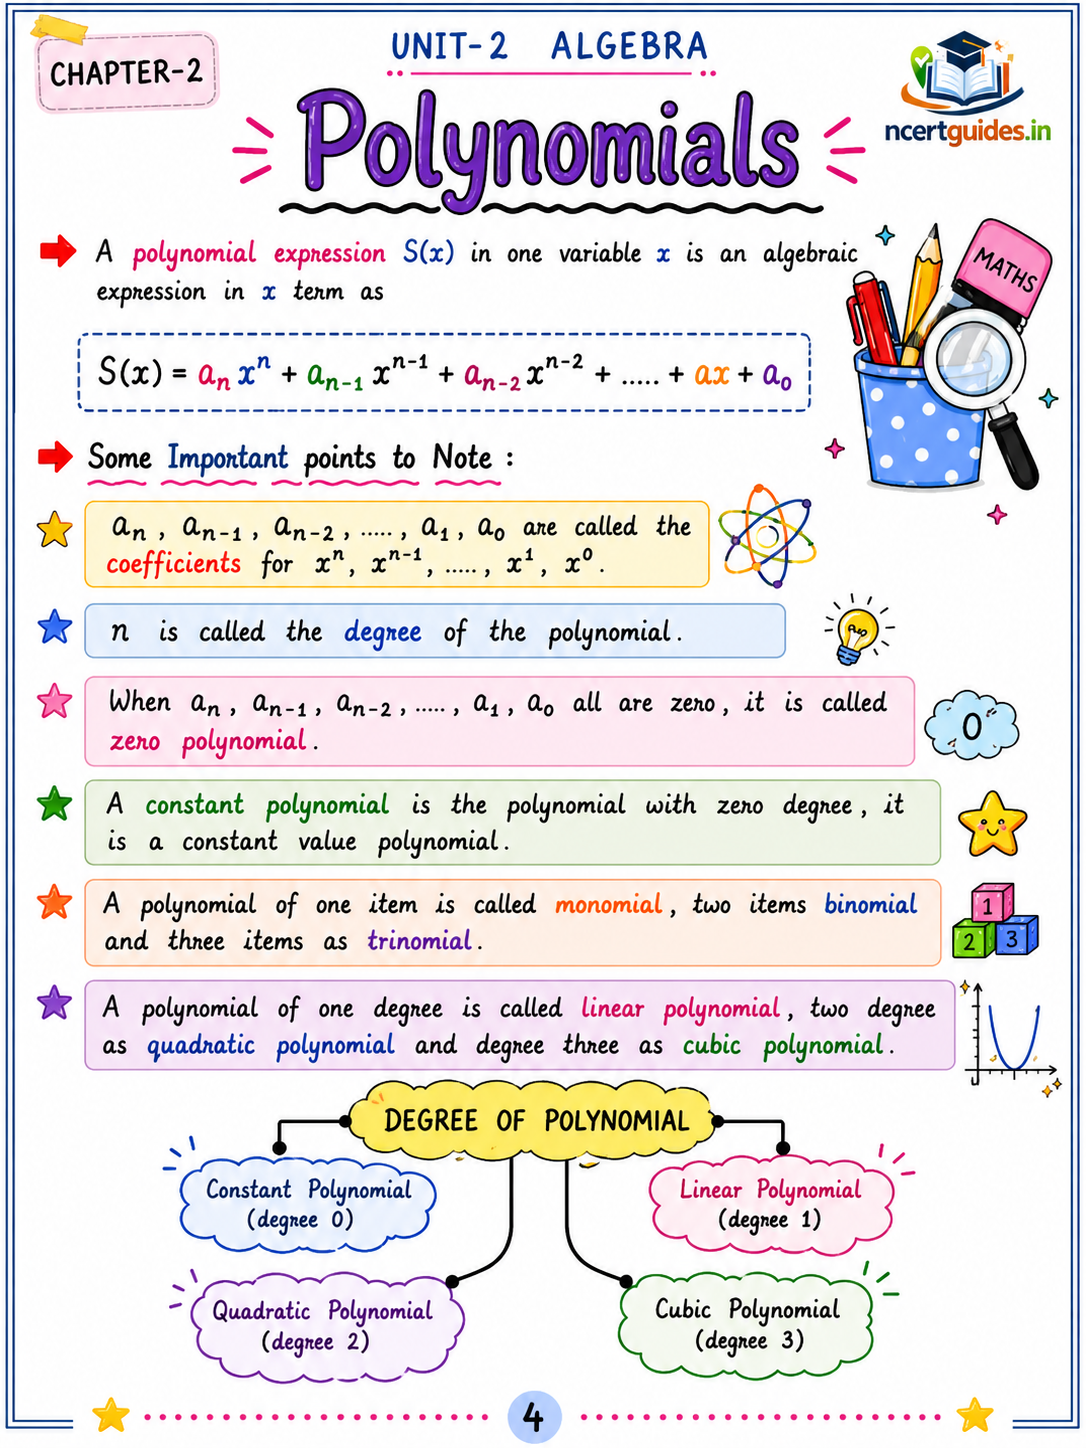 CHAPTER-2
UNIT-2 ALGEBRA
ncertguides.in
Polynomials
A polynomial expression S(x) in one variable x is an algebraic
expression in x term as
MATHS
S(x) = aₙ xⁿ + aₙ₋₁ xⁿ⁻¹ + aₙ₋₂ xⁿ⁻² + ..... + ax + a₀
Some Important points to Note :
aₙ , aₙ₋₁ , aₙ₋₂ , ..... , a₁ , a₀ are called the
coefficients for xⁿ, xⁿ⁻¹, ..... , x¹, x⁰ .
n is called the degree of the polynomial .
When aₙ , aₙ₋₁ , aₙ₋₂ , ..... , a₁ , a₀ all are zero , it is called
zero polynomial .
0
A constant polynomial is the polynomial with zero degree , it
is a constant value polynomial .
A polynomial of one item is called monomial , two items binomial
and three items as trinomial .
1
2 3
A polynomial of one degree is called linear polynomial , two degree
as quadratic polynomial and degree three as cubic polynomial .
DEGREE OF POLYNOMIAL
Constant Polynomial
(degree 0)
Linear Polynomial
(degree 1)
Quadratic Polynomial
(degree 2)
Cubic Polynomial
(degree 3)
4